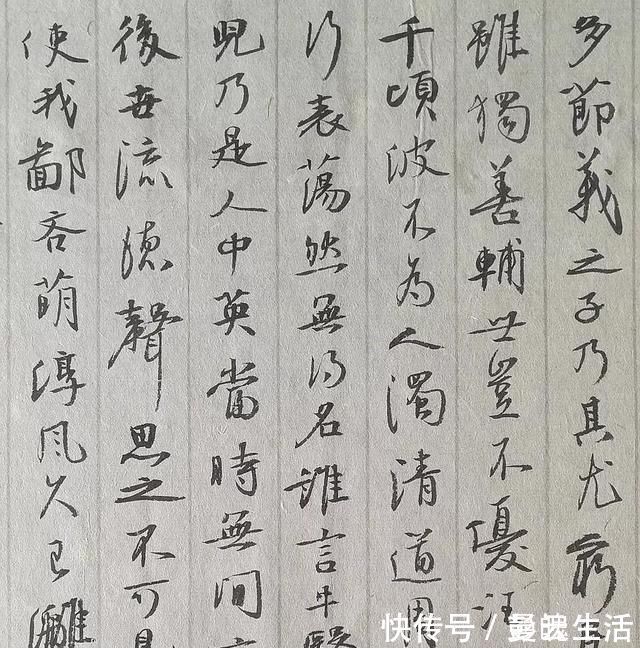 多節義之子乃其尤窮
雖獨善輔世豈不優汪
千頃波不為人濁清道周
行表蕩然無得名誰言牛醫
兒乃是人中英當時無間言
後世流德聲思之不可見
使我鄙吝萌淳風久已
快传号/曼谈生活